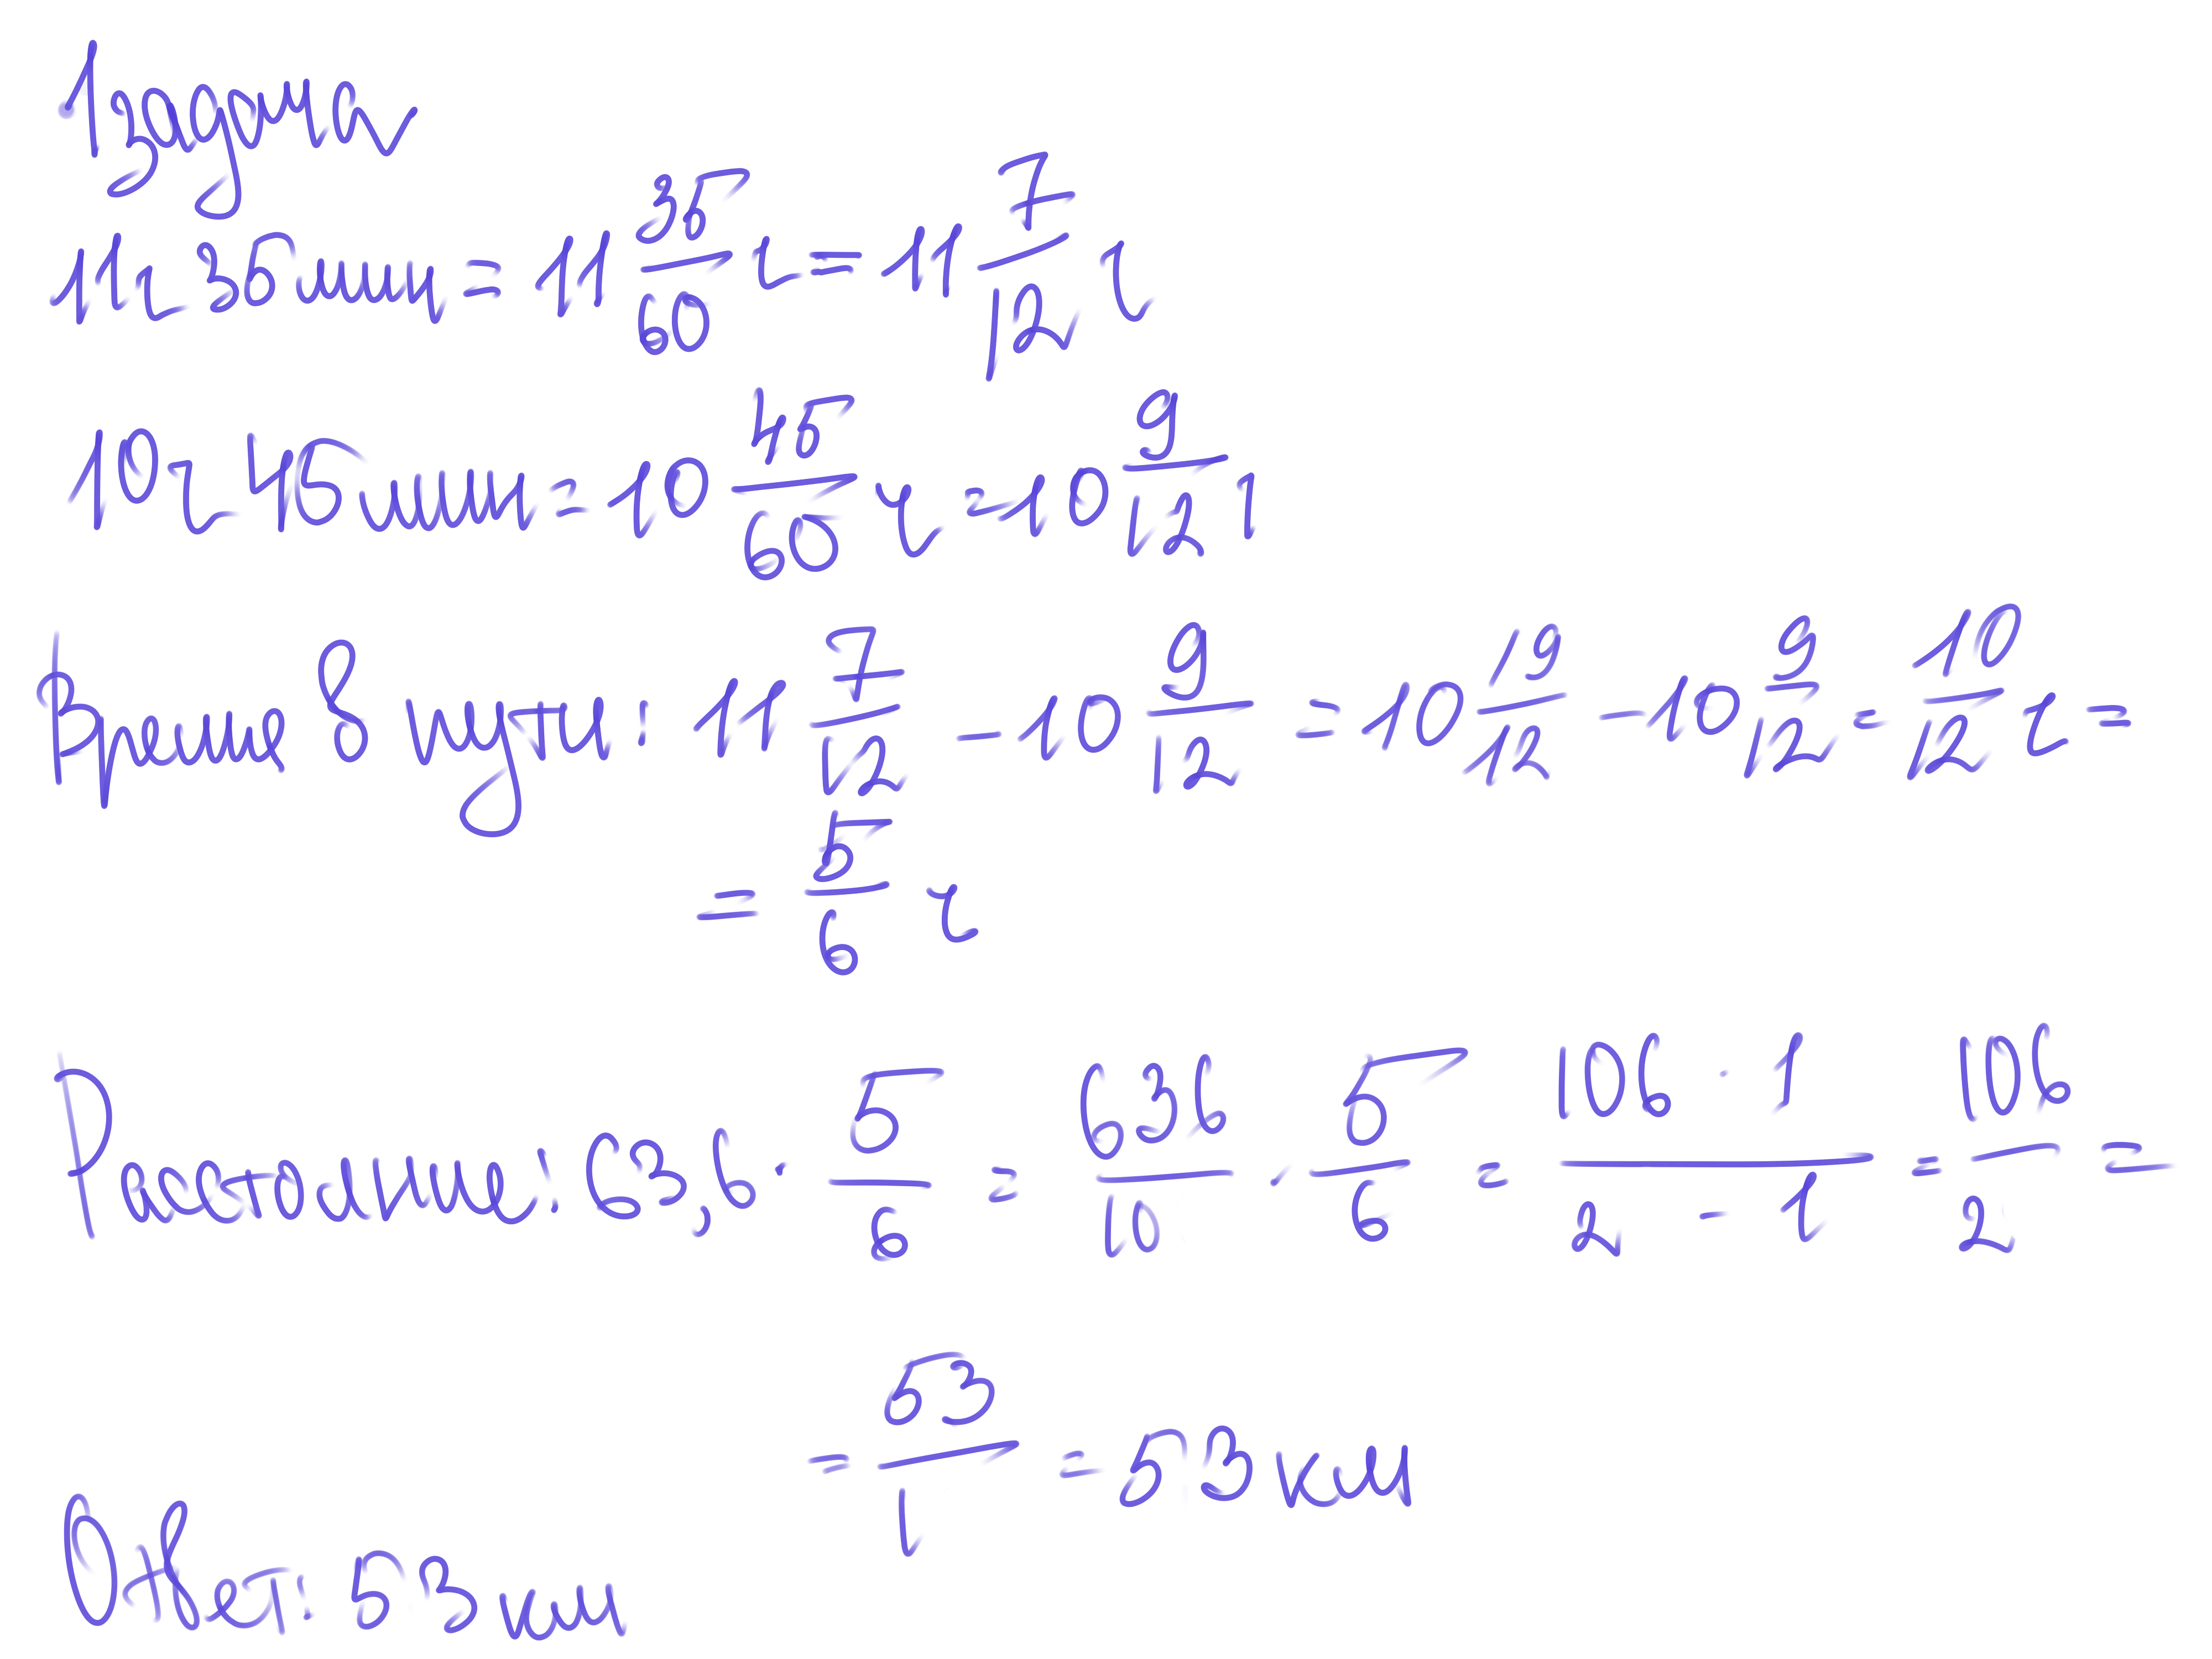 1 задача
11ч 35мин = 11 35/60 ч = 11 7/12 ч
10ч 45мин = 10 45/60 ч = 10 9/12 ч
Время в пути: 11 7/12 - 10 9/12 = 10 19/12 - 10 9/12 = 10/12 ч =
= 5/6 ч
Расстояние: 63,6 · 5/6 = 636/10 · 5/6 = 106 · 1/2 · 1 = 106/2 =
= 53/1 = 53 км
Ответ: 53 км